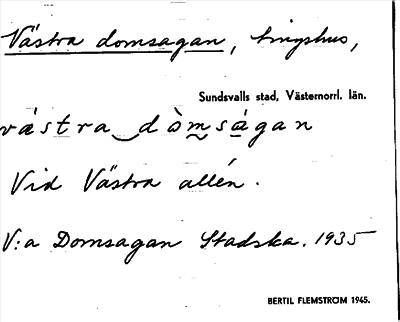 Västra domsagan, tingshus,
Sundsvalls stad, Västernorrl. län.
västra domsagan
Vid Västra allén.
V:a Domsagan Stadska. 1935
BERTIL FLEMSTRÖM 1945.